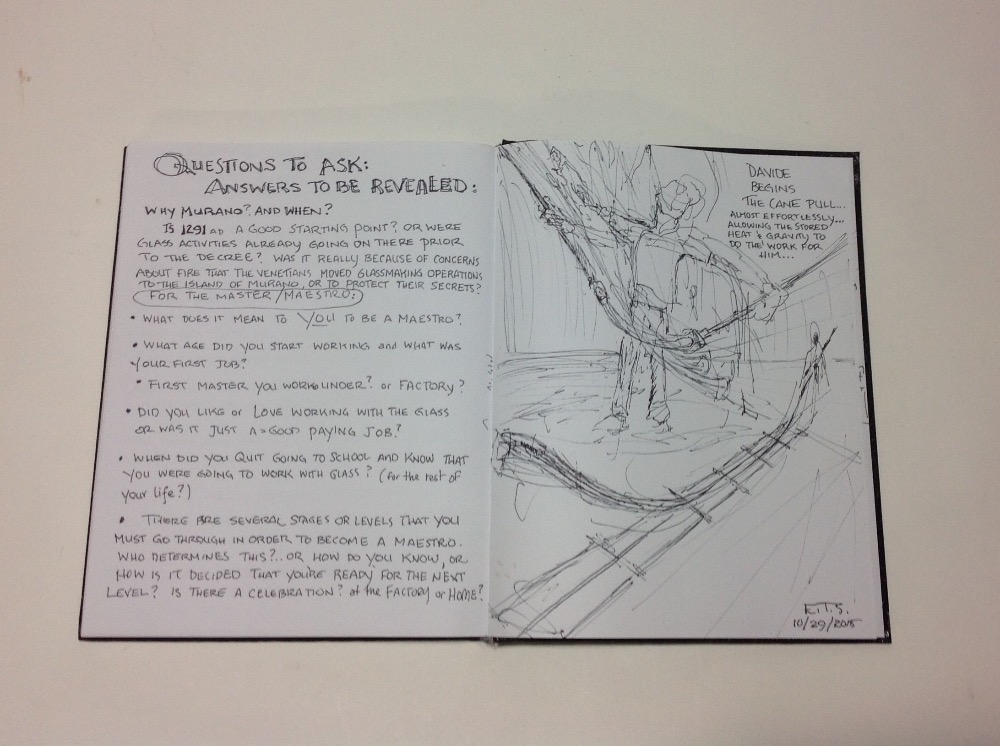 QUESTIONS TO ASK:
ANSWERS TO BE REVEALED:
WHY MURANO? AND WHEN?
IS 1291 AD A GOOD STARTING POINT? OR WERE
GLASS ACTIVITIES ALREADY GOING ON THERE PRIOR
TO THE DECREE? WAS IT REALLY BECAUSE OF CONCERNS
ABOUT FIRE THAT THE VENETIANS MOVED GLASSMAKING OPERATIONS
TO THE ISLAND OF MURANO, OR TO PROTECT THEIR SECRETS?
FOR THE MASTER/MAESTRO:
• WHAT DOES IT MEAN TO YOU TO BE A MAESTRO?
• WHAT AGE DID YOU START WORKING and WHAT WAS
YOUR FIRST JOB?
• FIRST MASTER YOU WORKED UNDER? or FACTORY?
• DID YOU LIKE or LOVE WORKING WITH THE GLASS
OR WAS IT JUST A GOOD PAYING JOB?
• WHEN DID YOU QUIT GOING TO SCHOOL AND KNOW THAT
YOU WERE GOING TO WORK WITH GLASS? (for the rest of
your life?)
• THERE ARE SEVERAL STAGES OR LEVELS THAT YOU
MUST GO THROUGH IN ORDER TO BECOME A MAESTRO.
WHO DETERMINES THIS?.. OR HOW DO YOU KNOW, OR
HOW IS IT DECIDED THAT YOU'RE READY FOR THE NEXT
LEVEL? IS THERE A CELEBRATION? at the FACTORY or HOME?
DAVIDE
BEGINS
THE CANE PULL...
ALMOST EFFORTLESSLY...
ALLOWING THE STORED
HEAT & GRAVITY TO
DO THE WORK FOR
HIM...
E.T.S.
10/29/2015